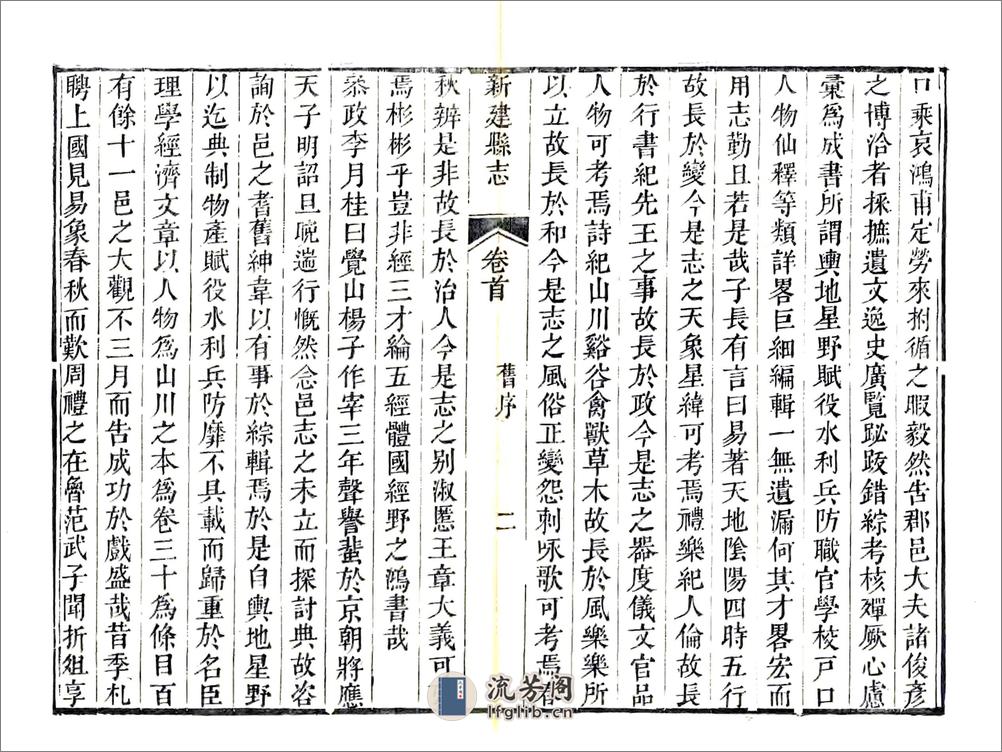 口乘哀鴻甫定勞來拊循之暇毅然告郡邑大夫諸俊彥
之博洽者採摭遺文逸史廣覽跐跂錯綜考核殫厥心慮
彙爲成書所謂輿地星野賦役水利兵防職官學校戶口
人物仙釋等類詳畧巨細編輯一無遺漏何其才畧宏而
用志勤且若是哉子長有言曰易著天地陰陽四時五行
故長於變今是志之天象星緯可考焉禮樂紀人倫故長
於行書紀先王之事故長於政今是志之器度儀文官品
人物可考焉詩紀山川谿谷禽獸草木故長於風樂樂所
以立故長於和今是志之風俗正變怨刺咏歌可考焉春
新建縣志 卷首 舊序 二
秋辨是非故長於治人今是志之别淑慝王章大義可
焉彬彬乎豈非經三才綸五經體國經野之鴻書哉
叅政李月桂曰覺山楊子作宰三年聲譽蜚於京朝將應
天子明詔旦晚遄行慨然念邑志之未立而探討典故咨
詢於邑之耆舊紳韋以有事於綜輯焉於是自輿地星野
以迄典制物產賦役水利兵防靡不具載而歸重於名臣
理學經濟文章以人物爲山川之本爲卷三十爲條目百
有餘十一邑之大觀不三月而告成功於戲盛哉昔季札
聘上國見易象春秋而歎周禮之在魯范武子聞折俎享
流芳阁
lfglib.cn